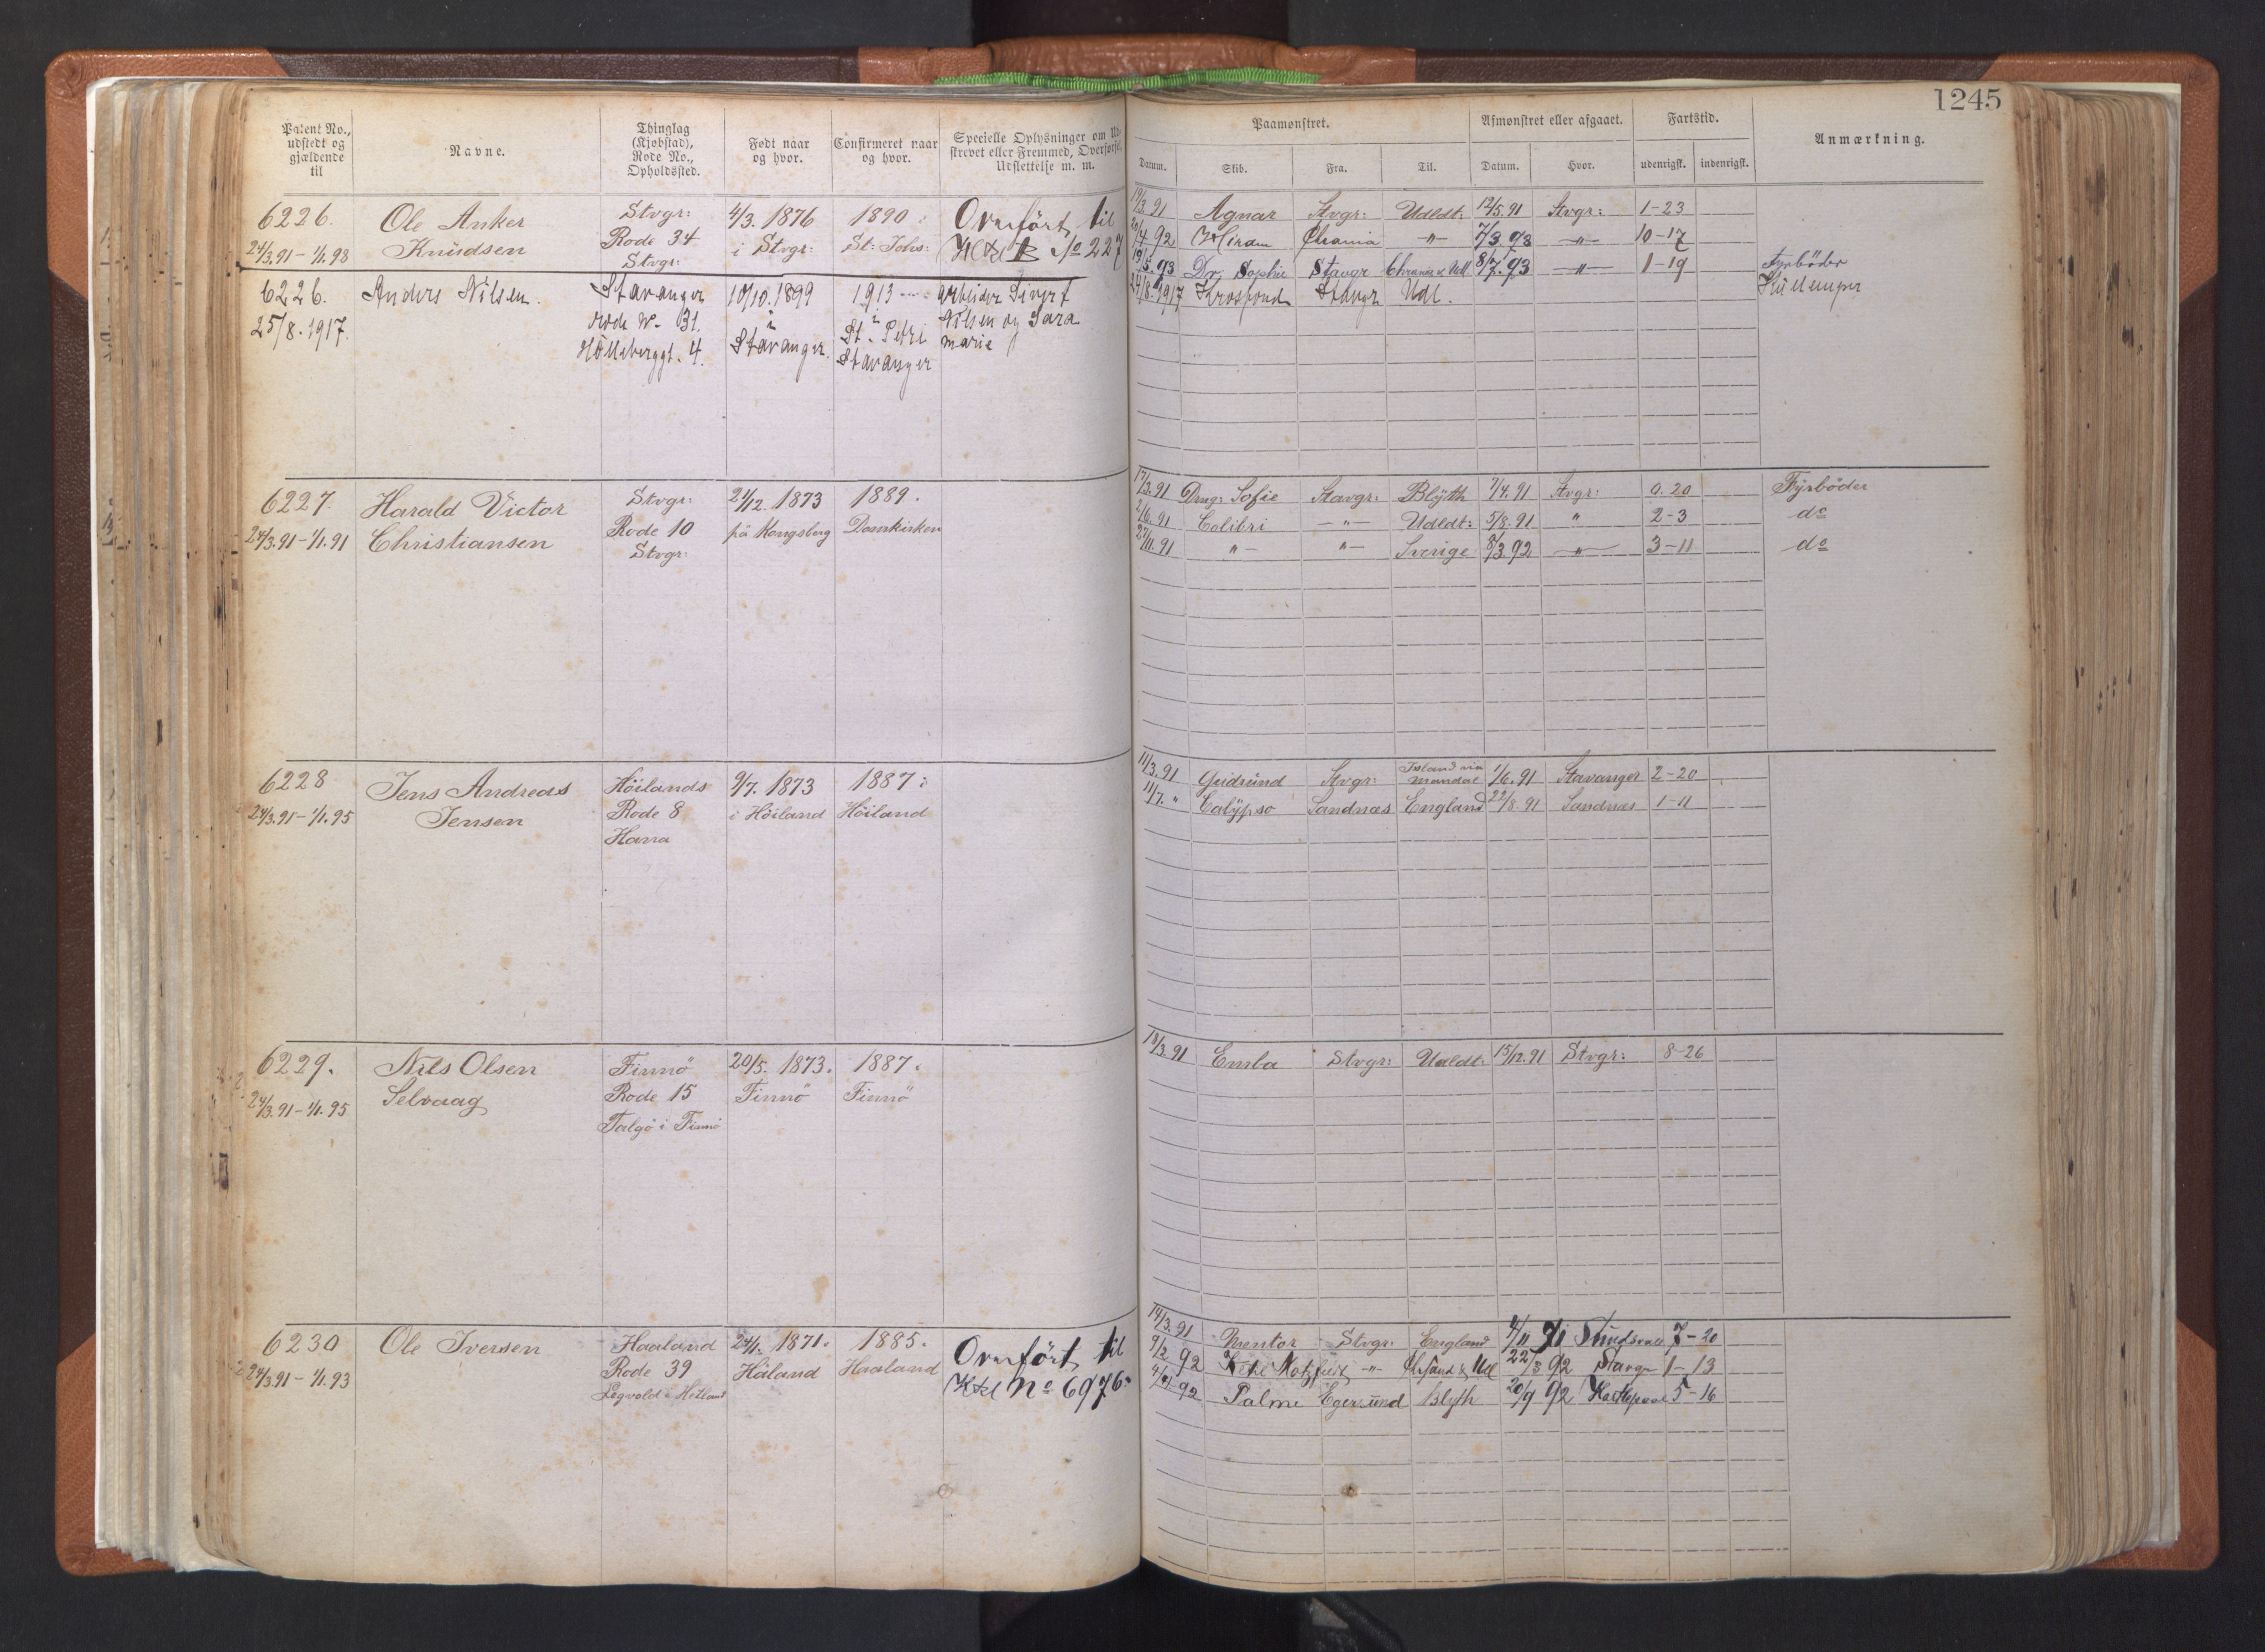 1245
Patent No., udstedt og gjældende til
Navne.
Thinglag (Kjøbstad), Rode No., Opholdssted.
Født naar og hvor.
Confirmeret naar og hvor.
Specielle Oplysninger om Ud- skrevet eller Fremmed, Overførsel, Udslettelse m. m.
Paamønstret.
Datum. Skib. Fra. Til.
Afmønstret eller afgaaet.
Datum. Hvor.
Fartstid.
udenrigsk. indenrigsk.
Anmærkning.
6226. Ole Anker Stvgr: 4/3. 1876 1890: Overført til
24/3.91 - 1/1.98 Knudsen Rode 34 i Stvgr: St: Johs: No 227
Stvgr:
19/3.91 Agnar Stvgr: Udldt: 12/5.91 Stvgr: 1-23
20/4 92 Hiram Chrania -"- 7/3.93 -"- 10-17
19/5.93 Dr: Sophie Stavgr Chrania & Udl 8/7.93 -"- 1-19 Fyrbøder
6226. Anders Nilsen. Stavanger 10/10.1899 1913 Arbeider Sivert
25/8.1917. rode No 31. i Stavanger. i St. Petri Stavanger Nilsen og Sara
4. marie
24/8.1917 Krosfond Stavgr Udl. Kullemper
6227. Harald Victor Stvgr: 24/12. 1873 1889.
24/3.91 - 1/1.91 Christiansen Rode 10 på Kongsberg Domkirken
Stvgr:
17/3.91 Drug: Sofie Stavgr: Blÿth 7/4.91 Stvgr: 0.20 Fÿrbøder
2/6.91 Colibri -"- Udldt: 5/8.91 " 2-3 do
27/11.91 "- "- Sverige 8/3.92 -"- 3-11 do
6228 Jens Andreas Høilands 9/7. 1873 1887:
24/3.91 - 1/1.95 Jensen Rode 8 i Høiland Høiland
Hana
11/3.91 Gudrund Stvgr: Island via Mandal 1/6.91 Stavanger 2-20
11/7. " Calÿpso Sandnæs England 22/8.91 Sandnæs 1-11
6229. Nils Olsen Finnö 20/5. 1873. 1887.
24/3.91 - 1/1.95 Selvaag Rode 15 Finnö Finnö
Talgö i Finnö
18/3.91 Embla Stvgr: Udldt: 15/12.91 Stvgr: 8-26
6230 Ole Iversen Haaland 24/1. 1871. 1885. Overført til
24/3.91 - 1/1.93 Rode 39 Håland Haaland No 6976.
i Hetland
14/3.91 Mentor Stvgr: England 4/11 91 Sundsvall 7-20
9/2 92 -"- Chrsand & Udl 22/3 92 Stavgr 1-13
4/4.92 Palme Egersund Blyth 20/9 92 Hartlepool 5-16